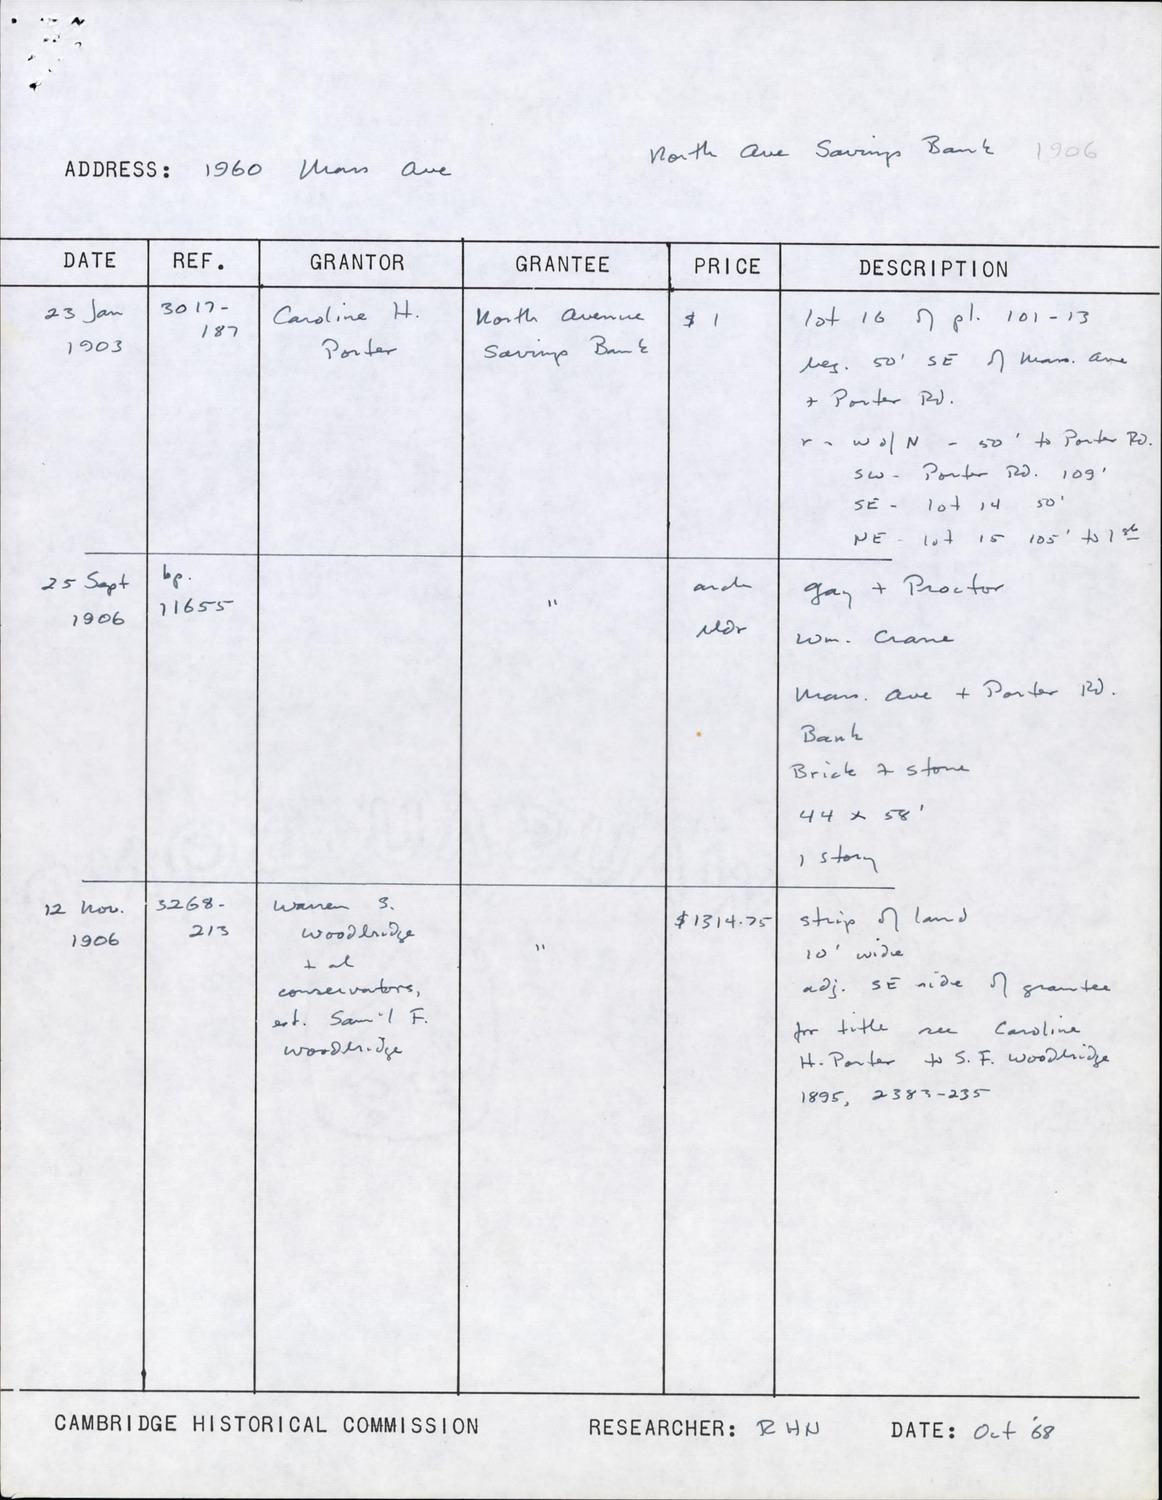 North Ave Savings Bank 1906
ADDRESS: 1960 Mass Ave
DATE REF. GRANTOR GRANTEE PRICE DESCRIPTION
23 Jan 3017- Caroline H. North Avenue $1 lot 16 of pl. 101-13
1903 187 Porter Savings Bank
beg. 50' SE of Mass. Ave
+ Porter Rd.
r - w o/ N - 50' to Porter Rd.
SW - Porter Rd. 109'
SE - lot 14 50'
NE - lot 15 105' to 1st
25 Sept bp. arch Gay + Proctor
1906 11655 " bldr Wm. Crane
Mass. Ave + Porter Rd.
Bank
Brick + stone
44 x 58'
1 story
12 Nov. 3268- Warren S. $1314.75 strip of land
1906 213 Woodbridge " 10' wide
+ al adj. SE side of grantee
conservators,
est. Sam'l F. for title see Caroline
Woodbridge H. Porter to S. F. Woodbridge
1895, 2383-235
CAMBRIDGE HISTORICAL COMMISSION RESEARCHER: RHN DATE: Oct '68